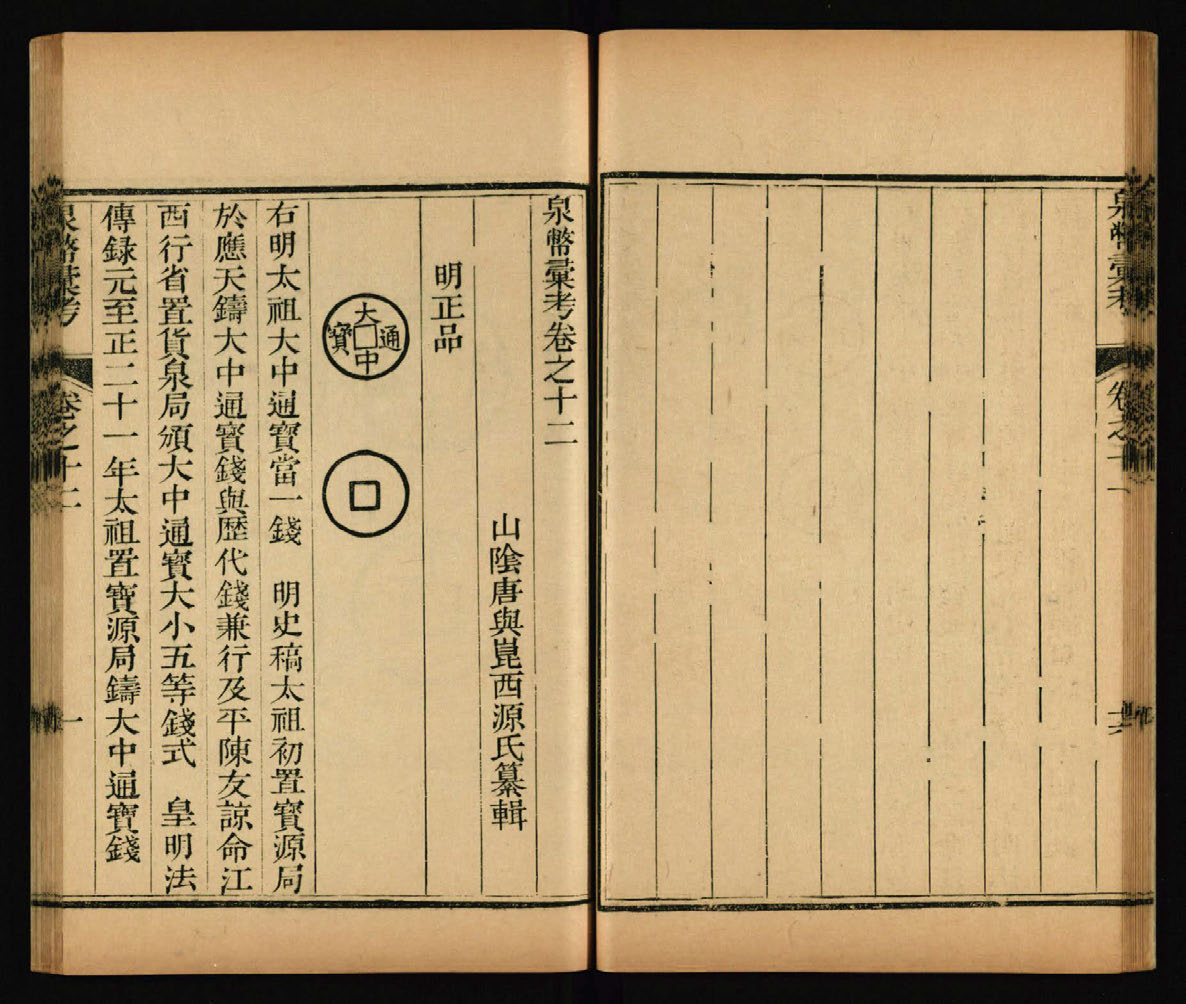 泉幣彙考
卷之十一
十六
泉幣彙考卷之十二
山陰唐與崑西源氏纂輯
明正品
大中通寶
右明太祖大中通寶當一錢　明史稿太祖初置寶源局
於應天鑄大中通寳錢與歷代錢兼行及平陳友諒命江
西行省置貨泉局頒大中通寳大小五等錢式　皇明法
傳録元至正二十一年太祖置寶源局鑄大中通寶錢
泉幣彙考
卷之十二
一